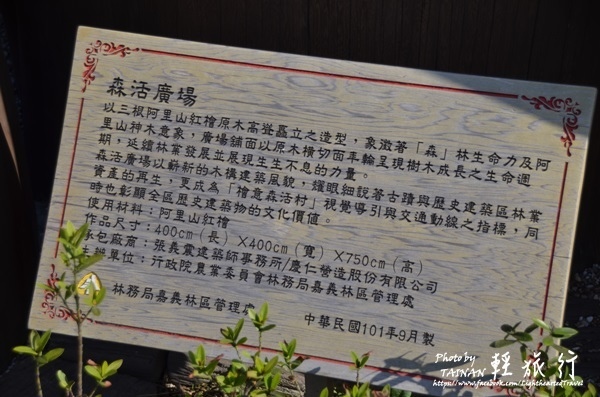 森活廣場
以三根阿里山紅檜原木高聳矗立之造型，象徵著「森」林生命力及阿
里山神木意象，廣場舖面以原木橫切面年輪呈現樹木成長之生命週
期，延續林業發展並展現生生不息的力量。
森活廣場以嶄新的木構建築風貌，耀眼細說著古蹟與歷史建築區林業
資產的再生，更成為「檜意森活村」視覺導引與交通動線之指標，同
時也彰顯全區歷史建築物的文化價值。
使用材料：阿里山紅檜
作品尺寸：400cm(長)X400cm(寬)X750cm(高)
承包廠商：張義震建築師事務所/慶仁營造股份有限公司
主辦單位：行政院農業委員會林務局嘉義林區管理處
林務局嘉義林區管理處
中華民國101年9月製
Photo by
TAINAN 輕旅行
https://www.facebook.com/LightheartedTravel